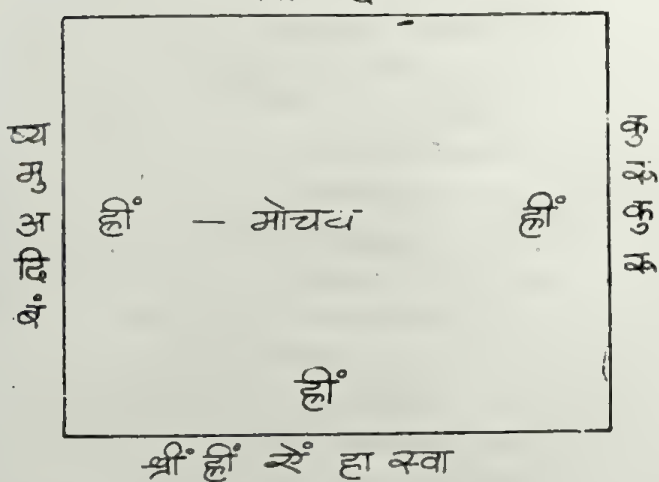 ष्य
मु
अ
ह्रीं – मोचय ह्रीं
कु
रु
कु
रु
ह्रीं
श्रीं ह्रीं ऐं हा स्वा